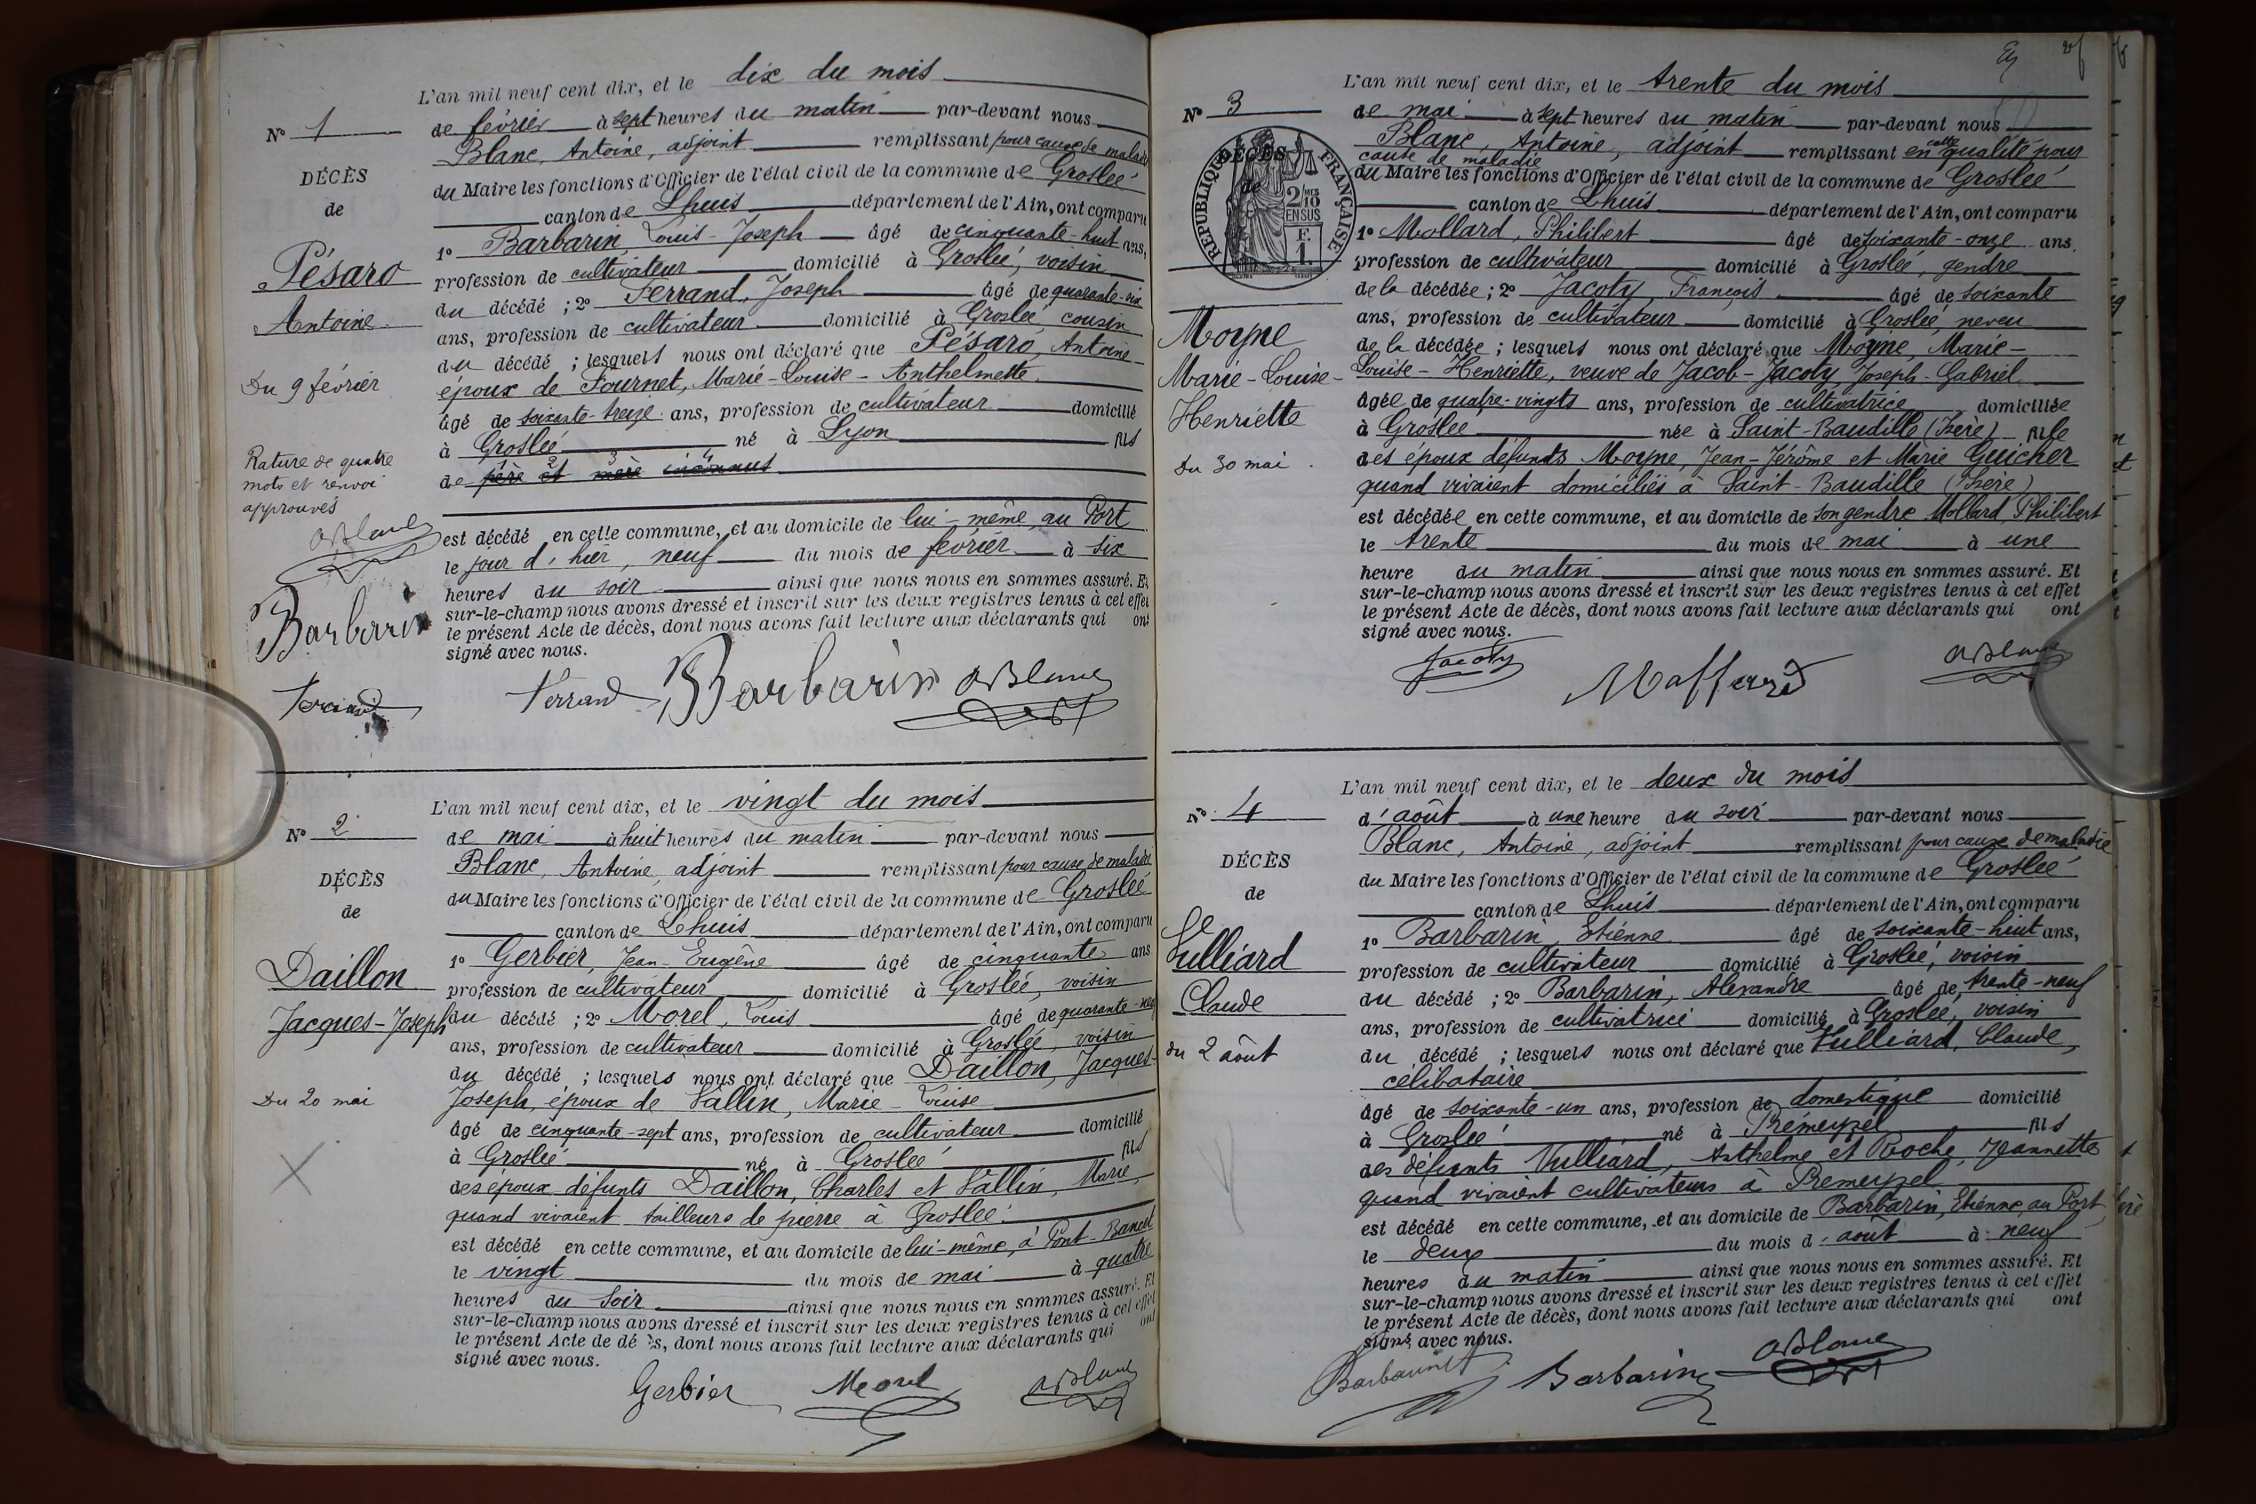 L'an mil neuf cent dix, et le dix du mois
N° 1
de février à sept heures du matin par-devant nous
Blanc, Antoine, adjoint remplissant pour cause de maladie
DÉCÈS
du Maire les fonctions d'Officier de l'état civil de la commune de Groslée
de
canton de Lhuis département de l'Ain, ont comparu
1° Barbarin, Louis-Joseph âgé de cinquante-huit ans,
Pésaro
profession de cultivateur domicilié à Groslée, voisin
du décédé ; 2° Ferrand, Joseph âgé de quarante-six
Antoine
ans, profession de cultivateur domicilié à Groslée, cousin
du décédé ; lesquels nous ont déclaré que Pésaro, Antoine
Du 9 février
époux de Fournet, Marie-Louise-Anthelmette,
âgé de soixante-treize ans, profession de cultivateur domicilié
à Groslée né à Lyon fils
Rature de quatre
mots et renvoi
approuvés
de père et mère inconnus
ABlanc
est décédé en cette commune, et au domicile de lui-même, au Port
le jour d'hier, neuf du mois de février à six
heures du soir ainsi que nous nous en sommes assuré. Et
sur-le-champ nous avons dressé et inscrit sur les deux registres tenus à cet effet
le présent Acte de décès, dont nous avons fait lecture aux déclarants qui ont
signé avec nous.
Barbarin
Ferrand
Ferrand Barbarin ABlanc
L'an mil neuf cent dix, et le vingt du mois
N° 2
de mai à huit heures du matin par-devant nous
Blanc, Antoine, adjoint remplissant pour cause de maladie
DÉCÈS
du Maire les fonctions d'Officier de l'état civil de la commune de Groslée
de
canton de Lhuis département de l'Ain, ont comparu
1° Gerbier, Jean-Eugène âgé de cinquante ans
Daillon
profession de cultivateur domicilié à Groslée, voisin
Jacques-Joseph
du décédé ; 2° Morel, Louis âgé de quarante-neuf
ans, profession de cultivateur domicilié à Groslée, voisin
du décédé ; lesquels nous ont déclaré que Daillon, Jacques-
Du 20 mai
Joseph, époux de Vallin, Marie-Louise
âgé de cinquante-sept ans, profession de cultivateur domicilié
à Groslée né à Groslée fils
des époux défunts Daillon, Charles et Vallin, Marie,
quand vivaient tailleurs de pierre à Groslée.
est décédé en cette commune, et au domicile de lui-même, à Pont-Bancet
le vingt du mois de mai à quatre
heures du soir ainsi que nous nous en sommes assuré. Et
sur-le-champ nous avons dressé et inscrit sur les deux registres tenus à cet effet
le présent Acte de décès, dont nous avons fait lecture aux déclarants qui ont
signé avec nous.
Gerbier Morel ABlanc
L'an mil neuf cent dix, et le trente du mois
N° 3
de mai à sept heures du matin par-devant nous
Blanc, Antoine, adjoint remplissant en cette qualité pour
cause de maladie
DÉCÈS
de
RÉPUBLIQUE FRANÇAISE
2/10
EN SUS
F.
1.
du Maire les fonctions d'Officier de l'état civil de la commune de Groslée
canton de Lhuis département de l'Ain, ont comparu
1° Mollard, Philibert âgé de soixante-onze ans.
profession de cultivateur domicilié à Groslée, gendre
de la décédée ; 2° Jacoty, François âgé de soixante
Moyne
ans, profession de cultivateur domicilié à Groslée, neveu
de la décédée ; lesquels nous ont déclaré que Moyne, Marie-
Marie-Louise-
Louise-Henriette, veuve de Jacob-Jacoty, Joseph-Gabriel
Henriette
âgée de quatre-vingts ans, profession de cultivatrice domiciliée
à Groslée née à Saint-Baudille (Isère) fille
Du 30 mai
des époux défunts Moyne, Jean-Jérôme et Marie Guicher
quand vivaient domiciliés à Saint-Baudille (Isère)
est décédée en cette commune, et au domicile de son gendre Mollard, Philibert
le trente du mois de mai à une
heure du matin ainsi que nous nous en sommes assuré. Et
sur-le-champ nous avons dressé et inscrit sur les deux registres tenus à cet effet
le présent Acte de décès, dont nous avons fait lecture aux déclarants qui ont
signé avec nous.
Jacoty ABlanc
L'an mil neuf cent dix, et le deux du mois
N° 4
d'août à une heure du soir par-devant nous
Blanc, Antoine, adjoint remplissant pour cause de maladie
DÉCÈS
du Maire les fonctions d'Officier de l'état civil de la commune de Groslée
de
canton de Lhuis département de l'Ain, ont comparu
1° Barbarin, Etienne âgé de soixante-huit ans,
Vulliard
profession de cultivateur domicilié à Groslée, voisin
Claude
du décédé ; 2° Barbarin, Alexandre âgé de trente-neuf
ans, profession de cultivatrice domicilié à Groslée, voisin
du 2 août
du décédé ; lesquels nous ont déclaré que Vulliard, Claude,
célibataire
âgé de soixante-un ans, profession de domestique domicilié
à Groslée né à Prémeyzel fils
des défunts Vulliard, Anthelme et Roche, Jeannette
quand vivaient cultivateurs à Premeyzel
est décédé en cette commune, et au domicile de Barbarin, Etienne, au Port
le deux du mois d'août à neuf
heures du matin ainsi que nous nous en sommes assuré. Et
sur-le-champ nous avons dressé et inscrit sur les deux registres tenus à cet effet
le présent Acte de décès, dont nous avons fait lecture aux déclarants qui ont
signé avec nous.
Barbarin Barbarin ABlanc